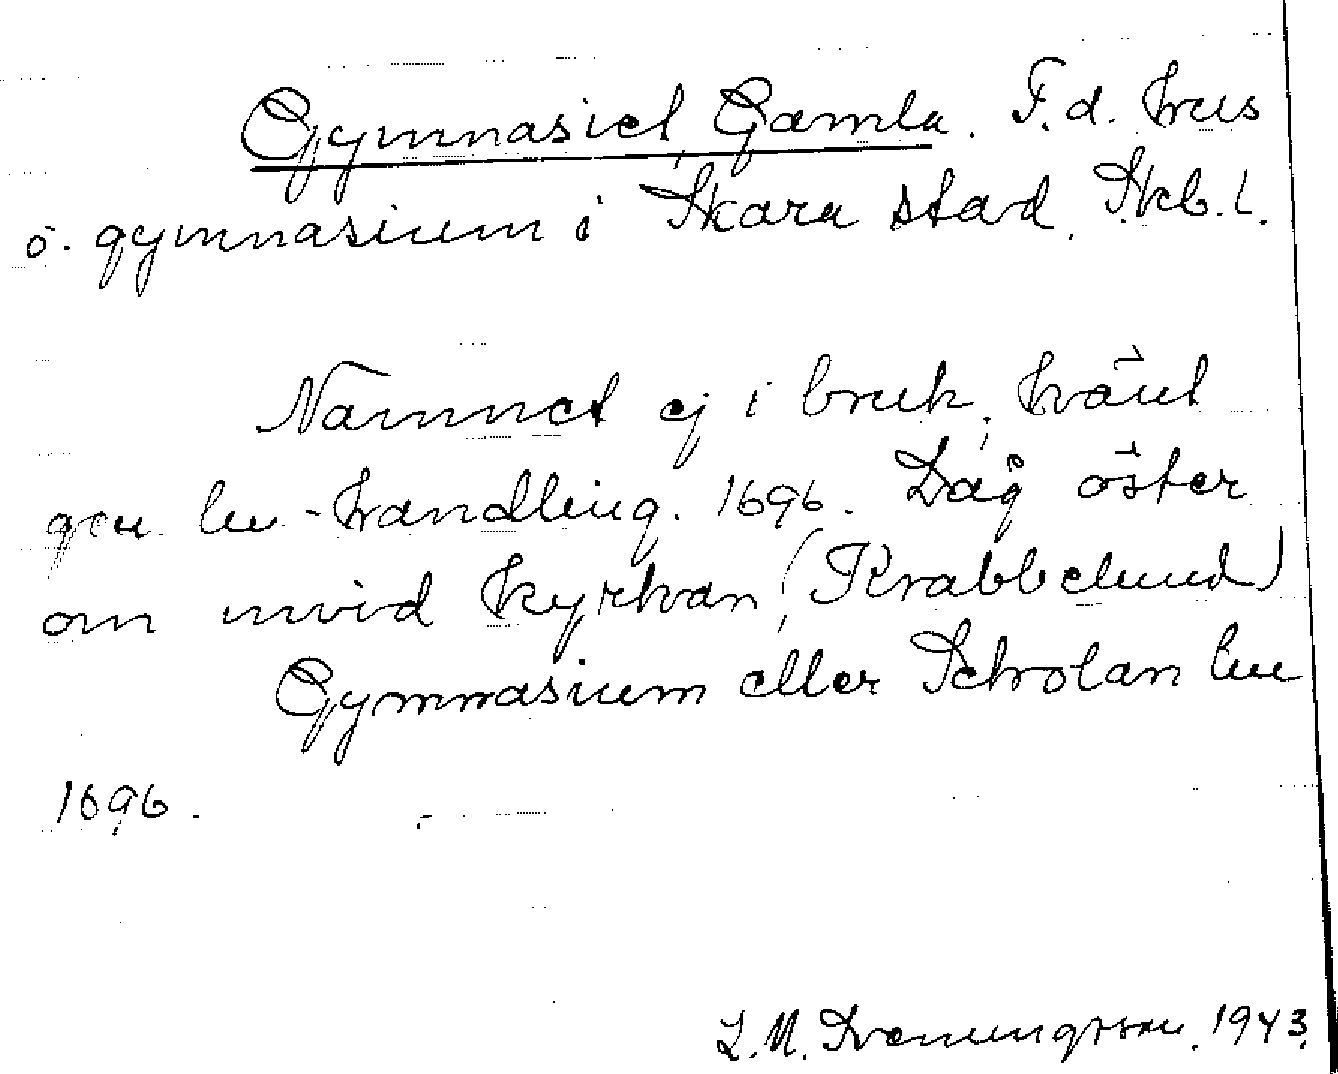 Gymnasiet, Gamla. F.d. hus
o. gymnasium i Skara stad. Skb. l.
Namnet ej i bruk, känt
gm lm-handling. 1696. Låg öster
om invid kyrkan, (Krabbelund)
Gymnasium eller Scholan lm
1696.
L. M. Svenungsson. 1943.